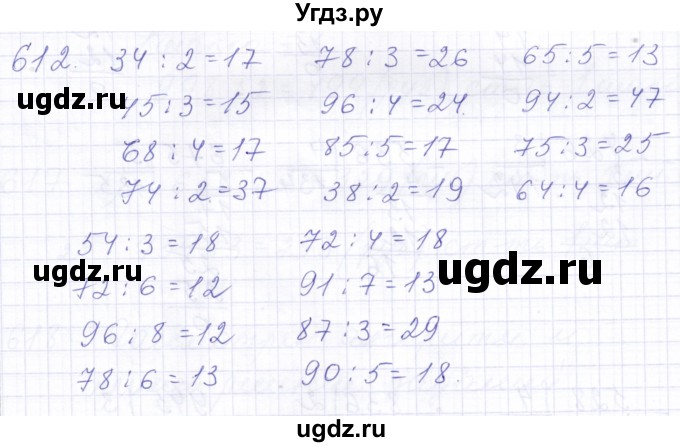 Угдз.ру
612. 34 : 2 = 17 78 : 3 = 26 65 : 5 = 13
ugdz.ru
45 : 3 = 15 96 : 4 = 24. 94 : 2 = 47
68 : 4 = 17 85 : 5 = 17 75 : 3 = 25
74 : 2 = 37 38 : 2 = 19 64 : 4 = 16
54 : 3 = 18 72 : 4 = 18
ugdz.ru ugdz.ru
72 : 6 = 12 91 : 7 = 13
96 : 8 = 12 87 : 3 = 29
78 : 6 = 13 90 : 5 = 18.
ugdz.ru